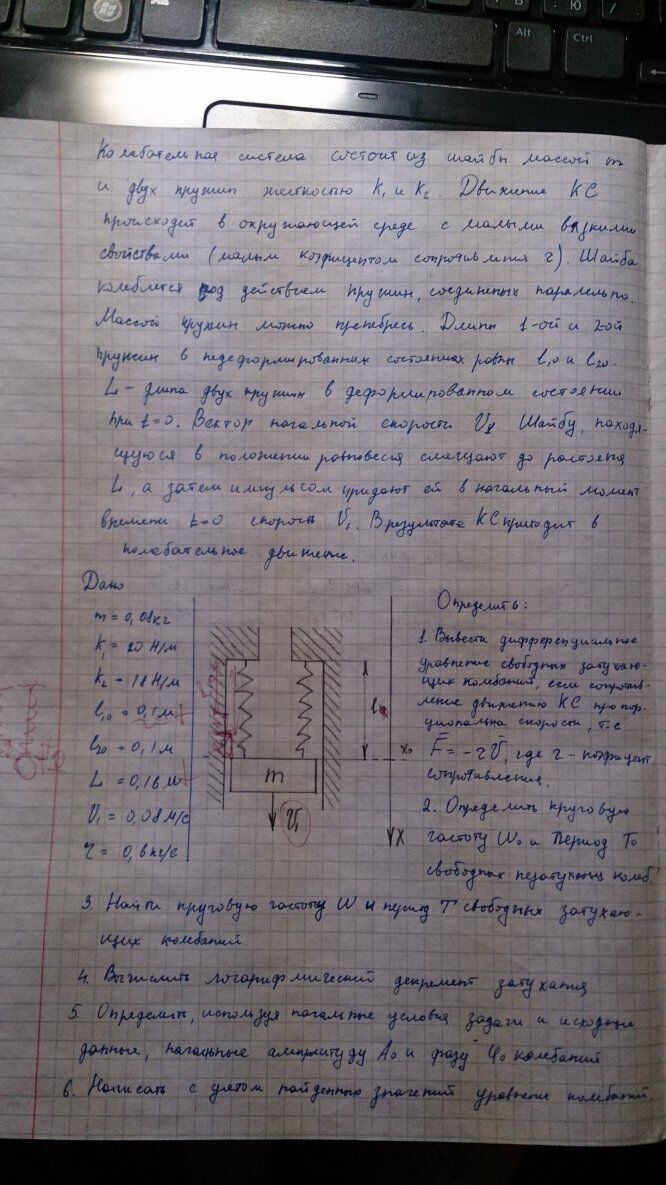 Alt
Ctrl
Ю
Колебательная система состоит из шайбы массой m
и двух пружин жесткостью k₁ и k₂. Движение КС
происходит в окружающей среде с малыми вязкими
свойствами (малым коэфицентом сопротивления r). Шайба
колеблется под действием пружин, соединеных паралельно.
Массой пружин можно пренебречь. Длины 1-ой и 2-ой
пружин в недеформированных состояниях равны l₁₀ и l₂₀.
L - длина двух пружин в деформированном состоянии
при t=0. Вектор начальной скорости V₁. Шайбу, находя-
щуюся в положении равновесия смещают до растояния
L, а затем импульсом придают ей в начальный момент
времени t=0 скорость V₁. В результате КС приходит в
колебательное движение.
Дано
m = 0,08кг
k₁ = 20 Н/м
k₂ = 18 Н/м
l₁₀ = 0,1 м
l₂₀ = 0,1 м
L = 0,16 м
V₁ = 0,08 м/с
r = 0,6 кг/с
m
V₁
x₀
X
Определить:
1. Вывести дифференциальное
уравнение свободных затухаю-
щих колебаний, если сопротив-
ление движению КС пропор-
ционально скорости, т.е
F̄ = -rV̄, где r - коэфицент
сопротивления.
2. Определить круговую
частоту W₀ и Период T₀
свободных незатухающих колеб.
3. Найти круговую частоту W и период T свободных затухаю-
щих колебаний
4. Вычислить логарифмический декремент затухания
5. Определить, используя начальные условия задачи и исходные
данные, начальные амплитуду A₀ и фазу φ₀ колебаний
6. Написать с учетом найденных значений уравнение колебаний.